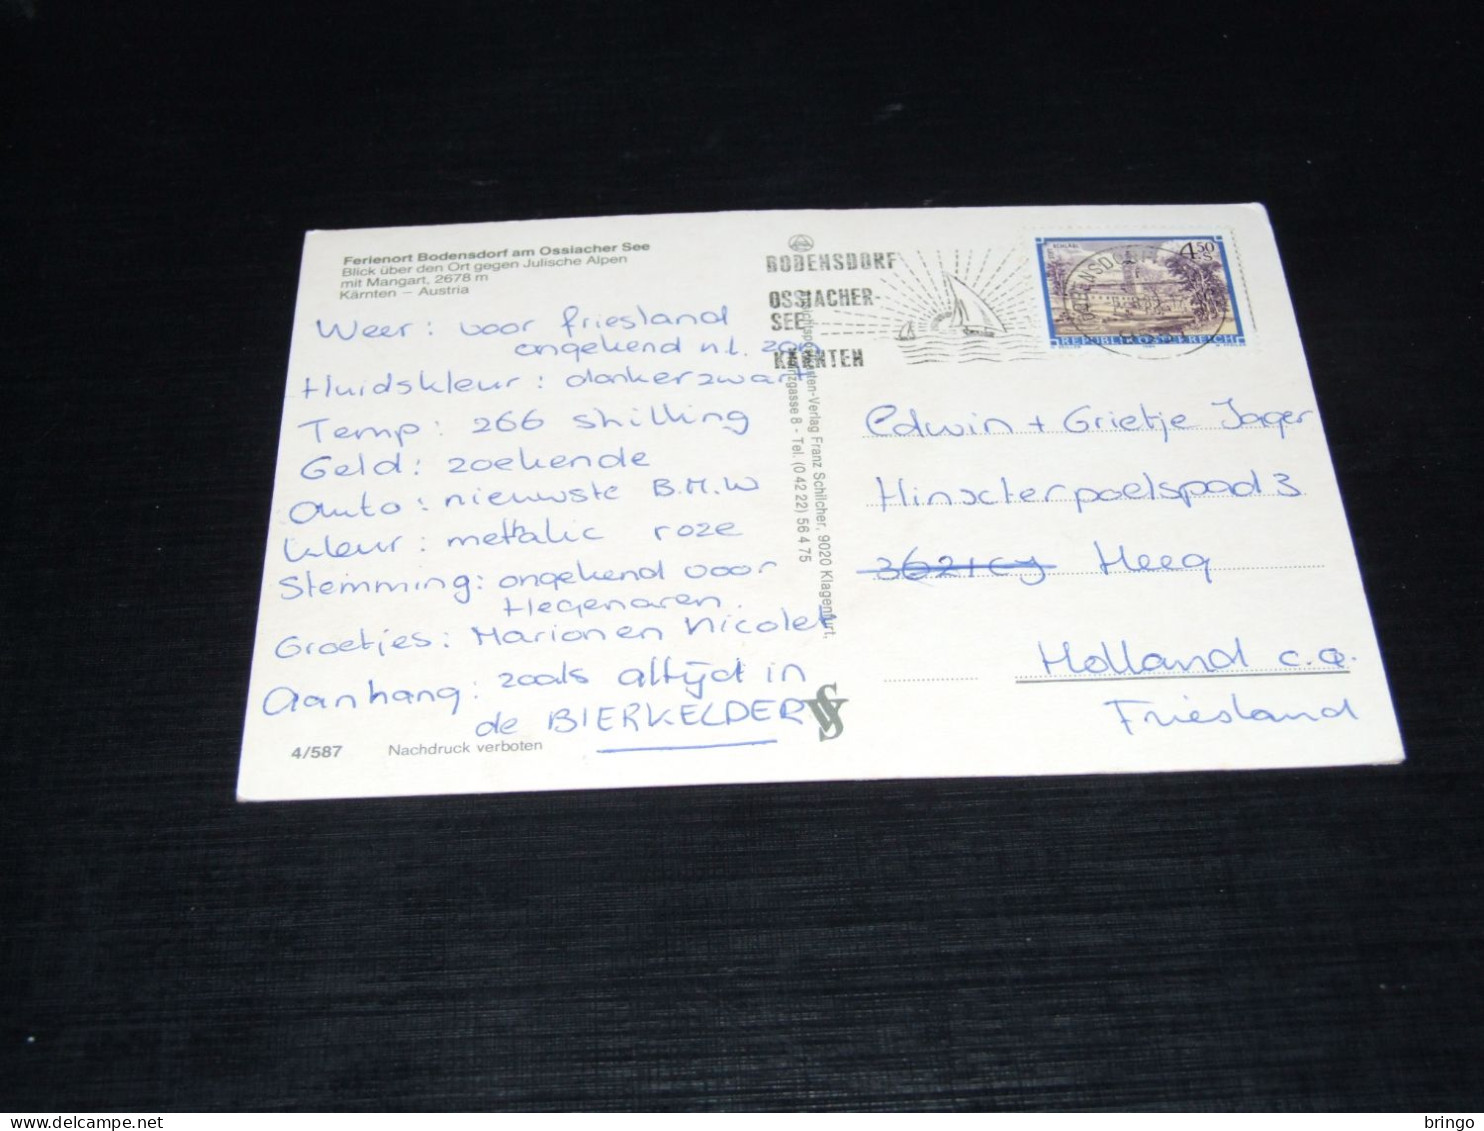 Ferienort Bodensdorf am Ossiacher See
Blick über den Ort gegen Julische Alpen
mit Mangart, 2678 m
Kärnten – Austria
Weer: voor friesland
ongekend n.l. zon
Huidskleur: donkerzwart
Temp: 266 shilling
Geld: zoekende
Auto: nieuwste B.M.W
kleur: mettalic roze
Stemming: ongekend voor
Hegenaren.
Groetjes: Marion en Nicolet
Aanhang: zoals altijd in
de BIERKELDER
4/587 Nachdruck verboten
BODENSDORF
OSSIACHER-
SEE
KÄRNTEN
-Verlag Franz Schilcher, 9020 Klagenfurt,
gasse 8 - Tel. (0 42 22) 56 4 75
4.50
S
REPUBLIK ÖSTERREICH
Edwin + Grietje Jager
Hinxterpoelspad 3
3621CY Heeg
Holland c.q.
Friesland
bringo